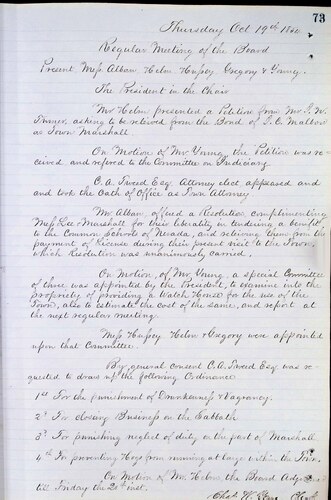 73
Thursday Oct 19th 1860
Regular Meeting of the Board
Present Mess Alban, Helm Hussey Gregory & Young.
The President in the Chair
Mr. Helm presented a Petition from Mr. J. W.
Turner, asking to be relieved from the Bond of J. C. Malbon
as Town Marshall.
On Motion of Mr Young, the Petition was re-
ceived and refered to the Committee on Judiciary
C. A. Tweed Esq. Attorney elect appeared and
and took the Oath of Office as Town Attorney
Mr. Alban, offered a Resolution, complimenting
Mess Lee & Marshall for their liberality in tendering a benefit
to the Common Schools of Nevada, and releiving them from the
payment of License during their present visit to the Town,
which Resolution was unanimously carried.
On Motion, of Mr. Young, a special Committee
of three was appointed by the President, to examine into the
propriety of providing a Watch House for the use of the
Town, also to estimate the cost of the same, and report at
the next regular meeting.
Mess Hussey Helm & Gregory were appointed
upon that Committee.
By general consent C. A. Tweed Esq. was re-
quested to draw up the following Ordinance
1st For the punishment of Drunkenness & Vagrancy.
2d For closing Business on the Sabbath
3d For punishing neglect of duty on the part of Marshall
4th For preventing Hogs from running at large within the Town.
On Motion of Mr. Helm, the Board Adjd
till Friday the 20th inst.
Chas. H.